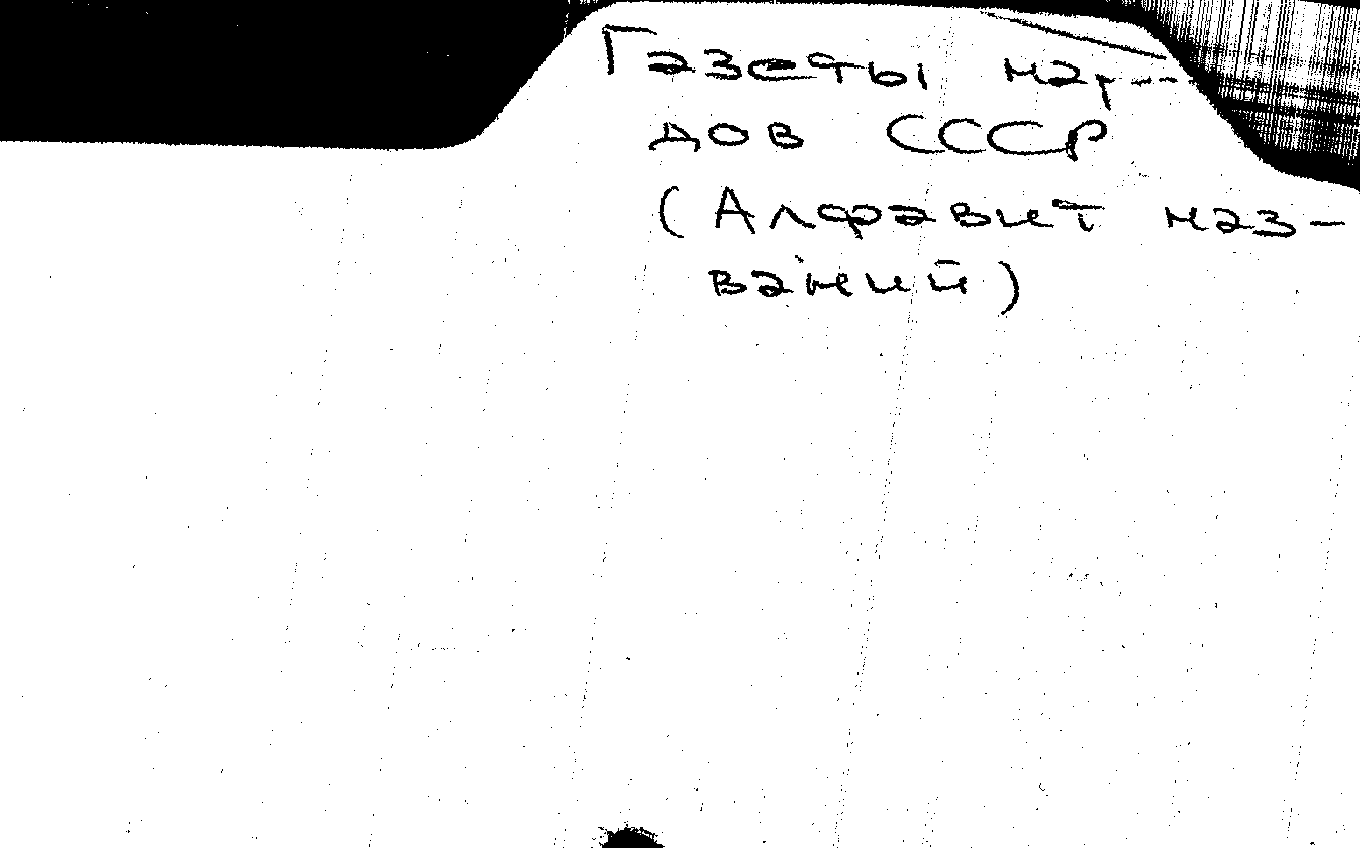 Газеты нар--
дов СССР
(Алфавит наз-
ваний)